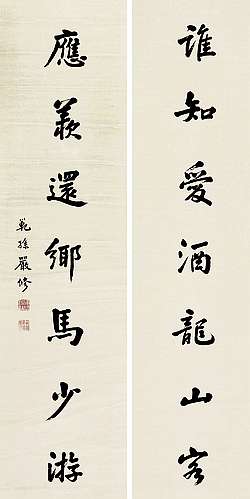 誰知愛酒龍山客
應羨還鄉馬少游
範孫嚴修